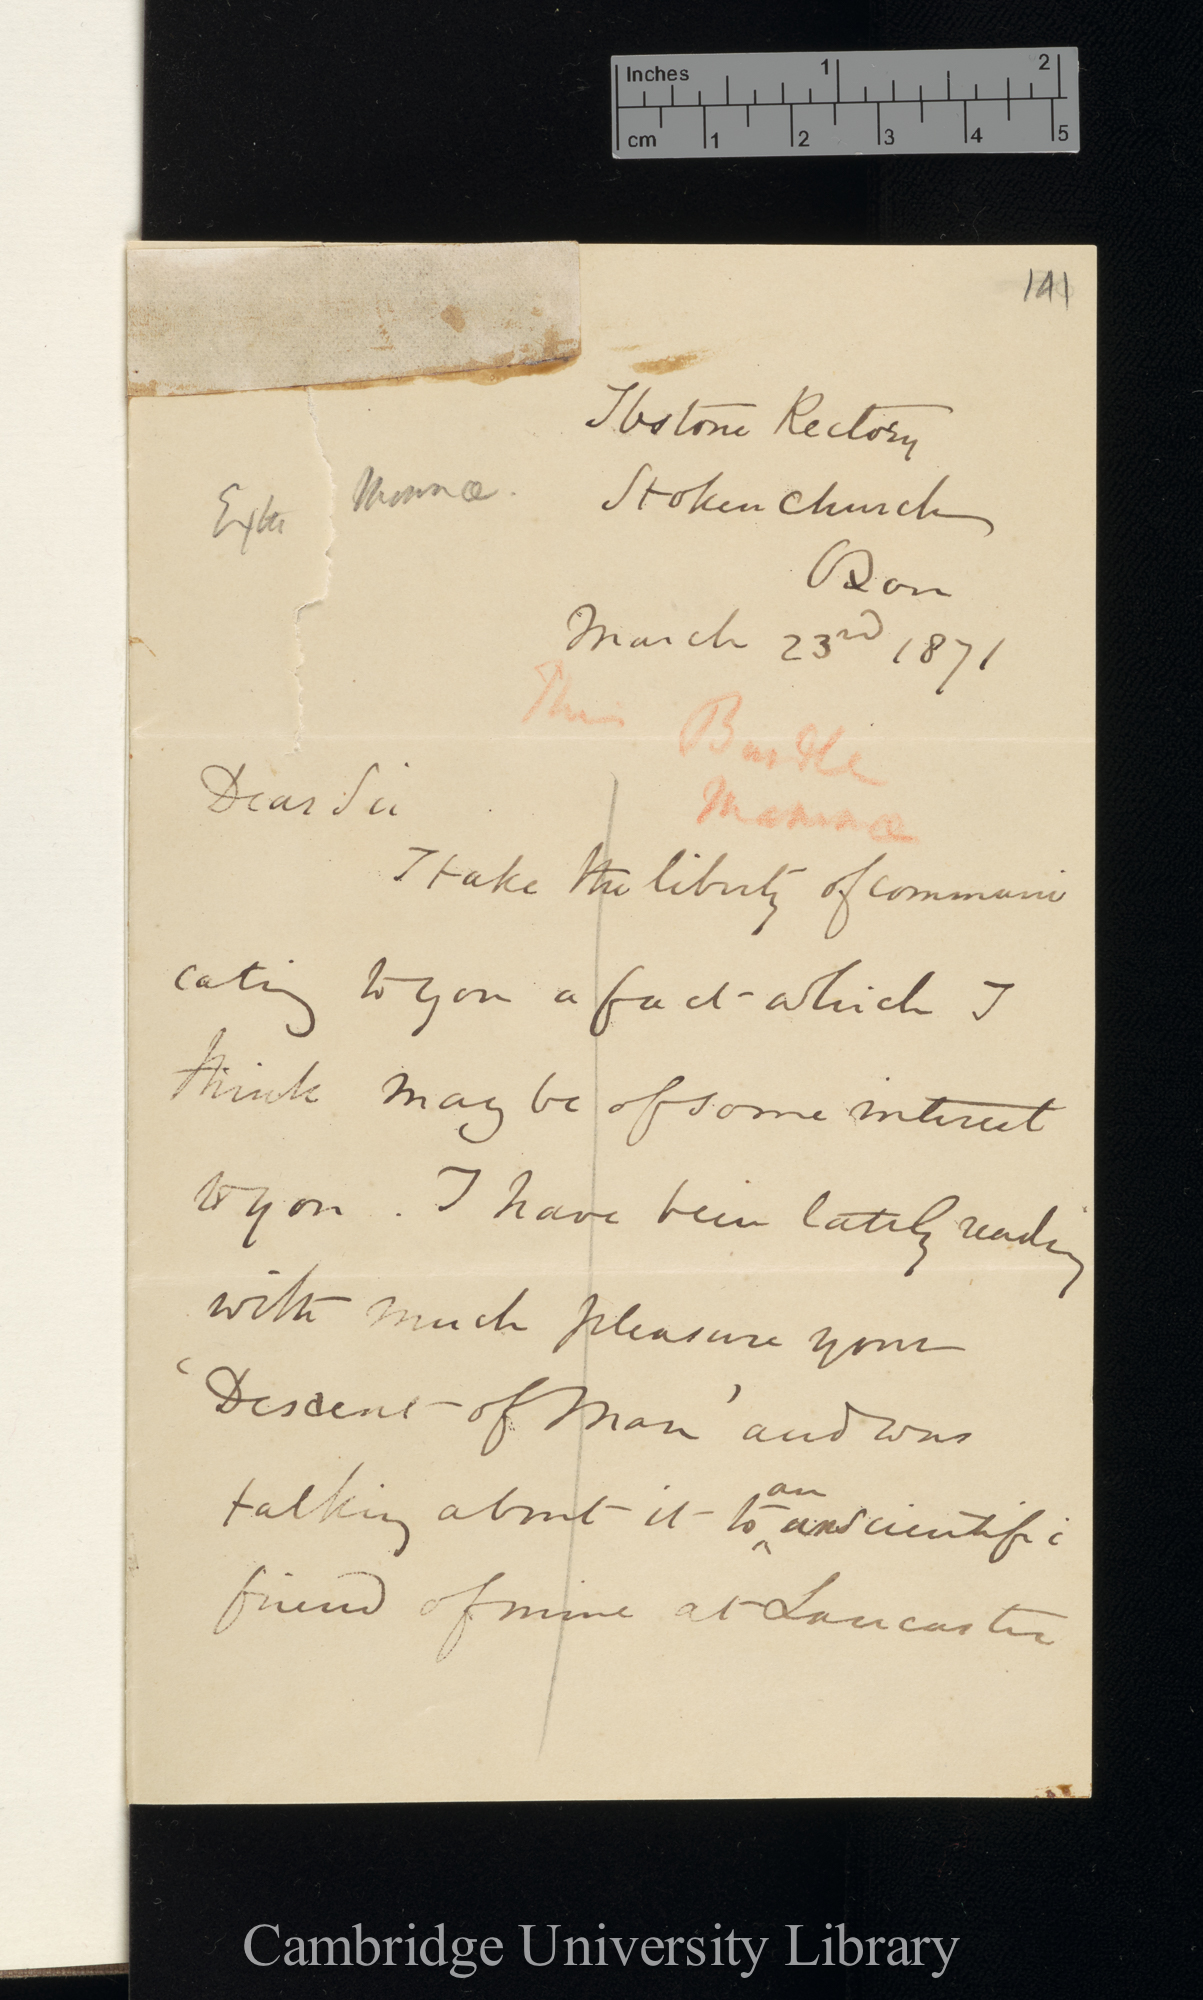 Inches 1 2
cm 1 2 3 4 5
141
Ibstone Rectory
Stokenchurch
Oxon
March 23rd 1871
Mammæ.
This Bundle
Mammæ
Dear Sir
I take the liberty of communi
cating to you a fact which I
think may be of some interest
to you. I have been lately reading
with much pleasure your
'Descent of Man' and was
talking about it to an unscientific
friend of mine at Lancaster
Cambridge University Library